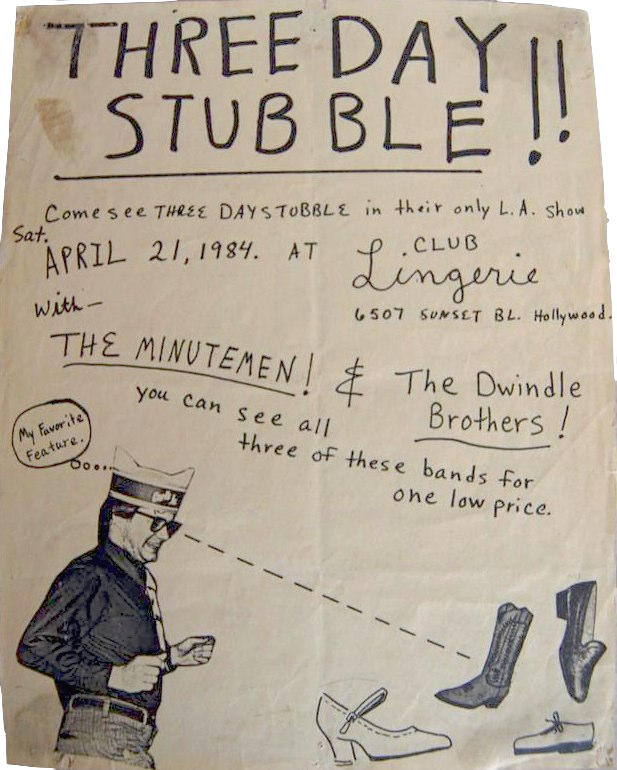 THREE DAY
STUBBLE!!
Come see THREE DAY STUBBLE in their only L.A. show
Sat.
APRIL 21, 1984. AT CLUB
Lingerie
6507 SUNSET BL. Hollywood.
with—
THE MINUTEMEN! & The Dwindle
Brothers!
you can see all
three of these bands for
one low price.
My Favorite
Feature.